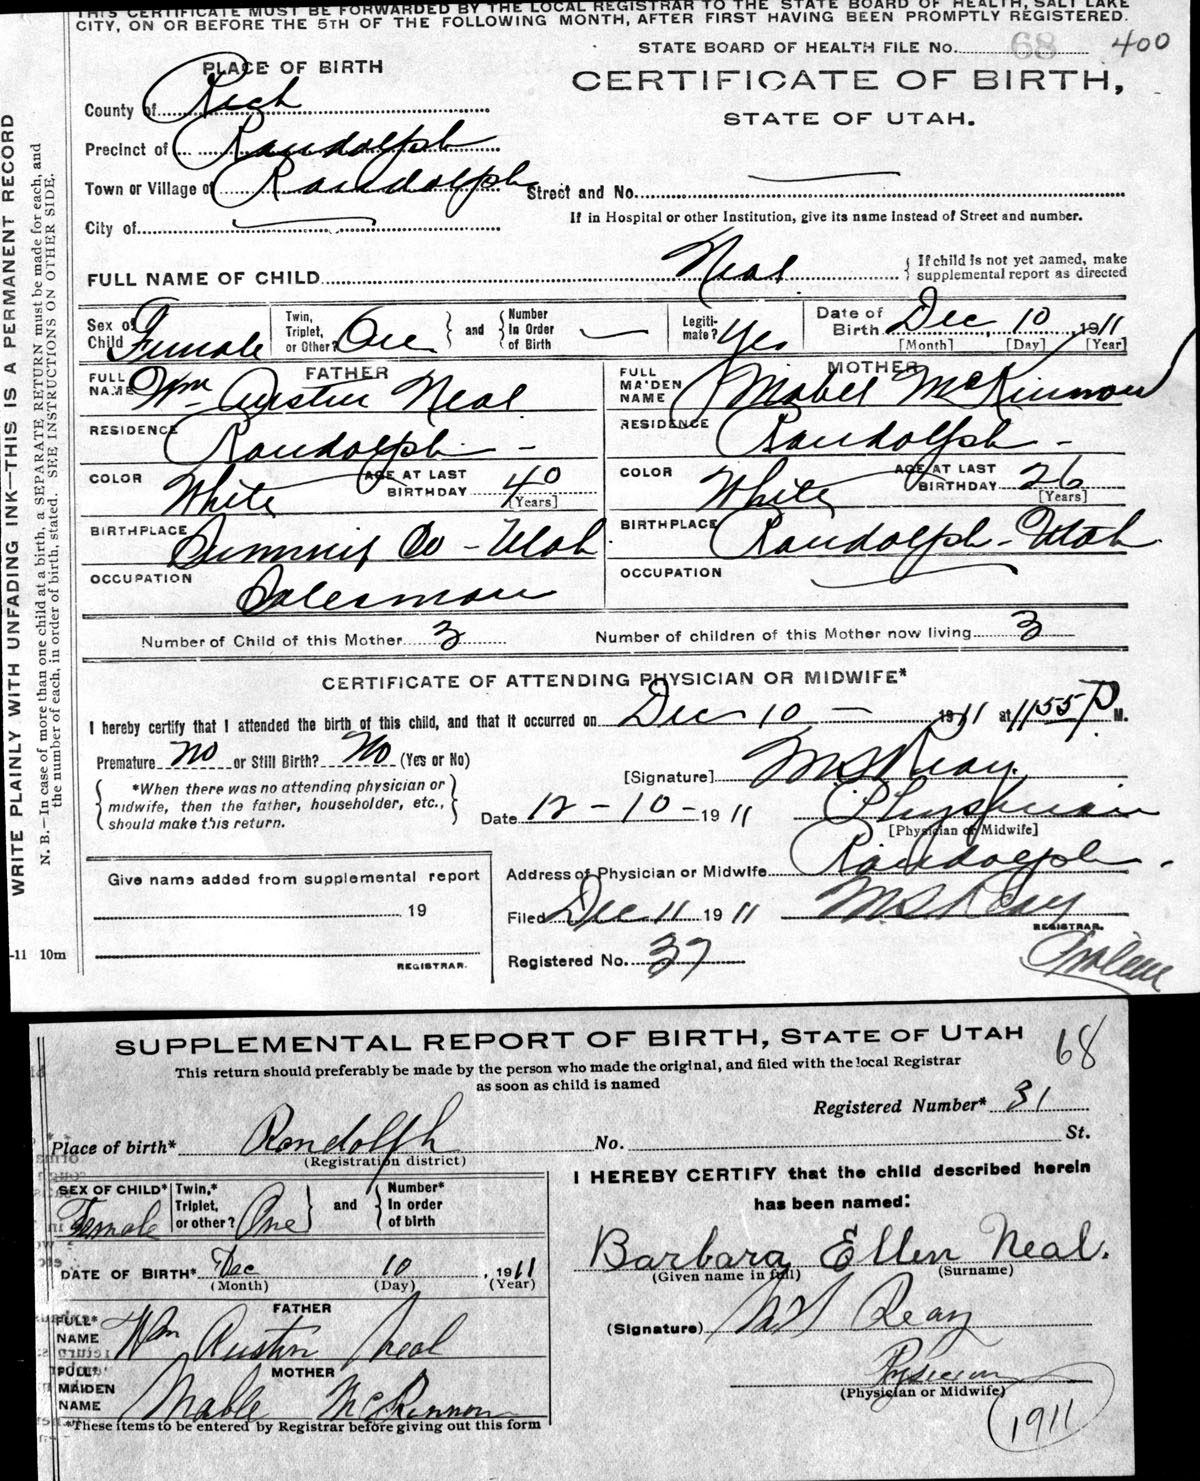 THIS CERTIFICATE MUST BE FORWARDED BY THE LOCAL REGISTRAR TO THE STATE BOARD OF HEALTH, SALT LAKE
CITY, ON OR BEFORE THE 5TH OF THE FOLLOWING MONTH, AFTER FIRST HAVING BEEN PROMPTLY REGISTERED.
STATE BOARD OF HEALTH FILE No. 68 400
PLACE OF BIRTH
CERTIFICATE OF BIRTH,
STATE OF UTAH.
County of Rich
Precinct of Randolph
Town or Village of Randolph Street and No.
If in Hospital or other Institution, give its name instead of Street and number.
City of
FULL NAME OF CHILD Neal { If child is not yet named, make supplemental report as directed
Sex of Child Female Twin, Triplet, or Other? One } and { Number In Order of Birth Legiti-mate? Yes Date of Birth Dec 10 1911
[Month] [Day] [Year]
FATHER
FULL NAME Wm Austin Neal
RESIDENCE Randolph
COLOR White AGE AT LAST BIRTHDAY 40 [Years]
BIRTHPLACE Summit Co - Utah
OCCUPATION Salesman
MOTHER
FULL MAIDEN NAME Mabel McKinnon
RESIDENCE Randolph
COLOR White AGE AT LAST BIRTHDAY 26 [Years]
BIRTHPLACE Randolph - Utah
OCCUPATION
Number of Child of this Mother 3 Number of children of this Mother now living 3
CERTIFICATE OF ATTENDING PHYSICIAN OR MIDWIFE*
I hereby certify that I attended the birth of this child, and that it occurred on Dec 10 - 1911 at 11 55 P M.
Premature No or Still Birth? No (Yes or No)
[Signature] M S Reay
{ *When there was no attending physician or midwife, then the father, householder, etc., should make this return. }
Date 12-10-1911 Physician
[Physician or Midwife]
Address of Physician or Midwife Randolph
Filed Dec 11 1911 M S Reay
REGISTRAR.
Registered No. 37
Give name added from supplemental report
19
REGISTRAR.
WRITE PLAINLY WITH UNFADING INK—THIS IS A PERMANENT RECORD
N. B.—In case of more than one child at a birth, a SEPARATE RETURN must be made for each, and
the number of each, in order of birth, stated. SEE INSTRUCTIONS ON OTHER SIDE.
-11 10m
SUPPLEMENTAL REPORT OF BIRTH, STATE OF UTAH 68
This return should preferably be made by the person who made the original, and filed with the local Registrar
as soon as child is named
Registered Number* 31
Place of birth* Randolph No. St.
(Registration district)
SEX OF CHILD* Female Twin,* Triplet, or other? One } and { Number* In order of birth
DATE OF BIRTH* Dec 10, 1911
(Month) (Day) (Year)
FATHER
FULL* NAME Wm Austin Neal
MOTHER
FULL* MAIDEN NAME Mable McKinnon
*These items to be entered by Registrar before giving out this form
I HEREBY CERTIFY that the child described herein
has been named:
Barbara Ellen Neal.
(Given name in full) (Surname)
(Signature) M S Reay
Physician
(Physician or Midwife)
1911